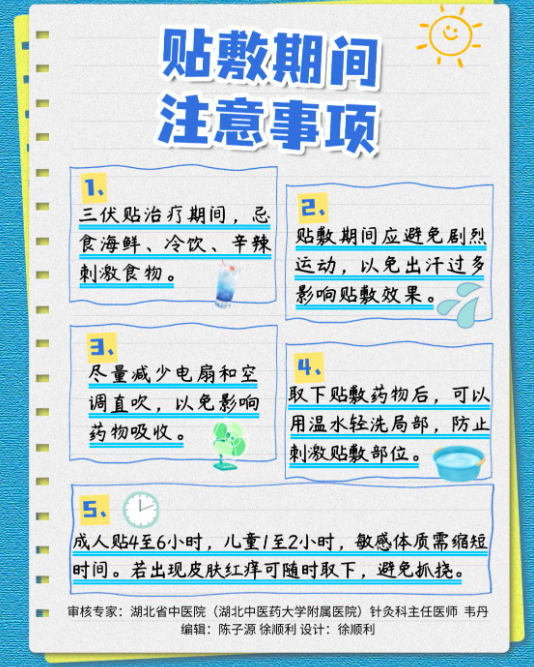 贴敷期间
注意事项
1、
三伏贴治疗期间，忌
食海鲜、冷饮、辛辣
刺激食物。
2、
贴敷期间应避免剧烈
运动，以免出汗过多
影响贴敷效果。
3、
尽量减少电扇和空
调直吹，以免影响
药物吸收。
4、
取下贴敷药物后，可以
用温水轻洗局部，防止
刺激贴敷部位。
5、
成人贴4至6小时，儿童1至2小时，敏感体质需缩短
时间。若出现皮肤红痒可随时取下，避免抓挠。
审核专家：湖北省中医院（湖北中医药大学附属医院）针灸科主任医师 韦丹
编辑：陈子源 徐顺利 设计：徐顺利